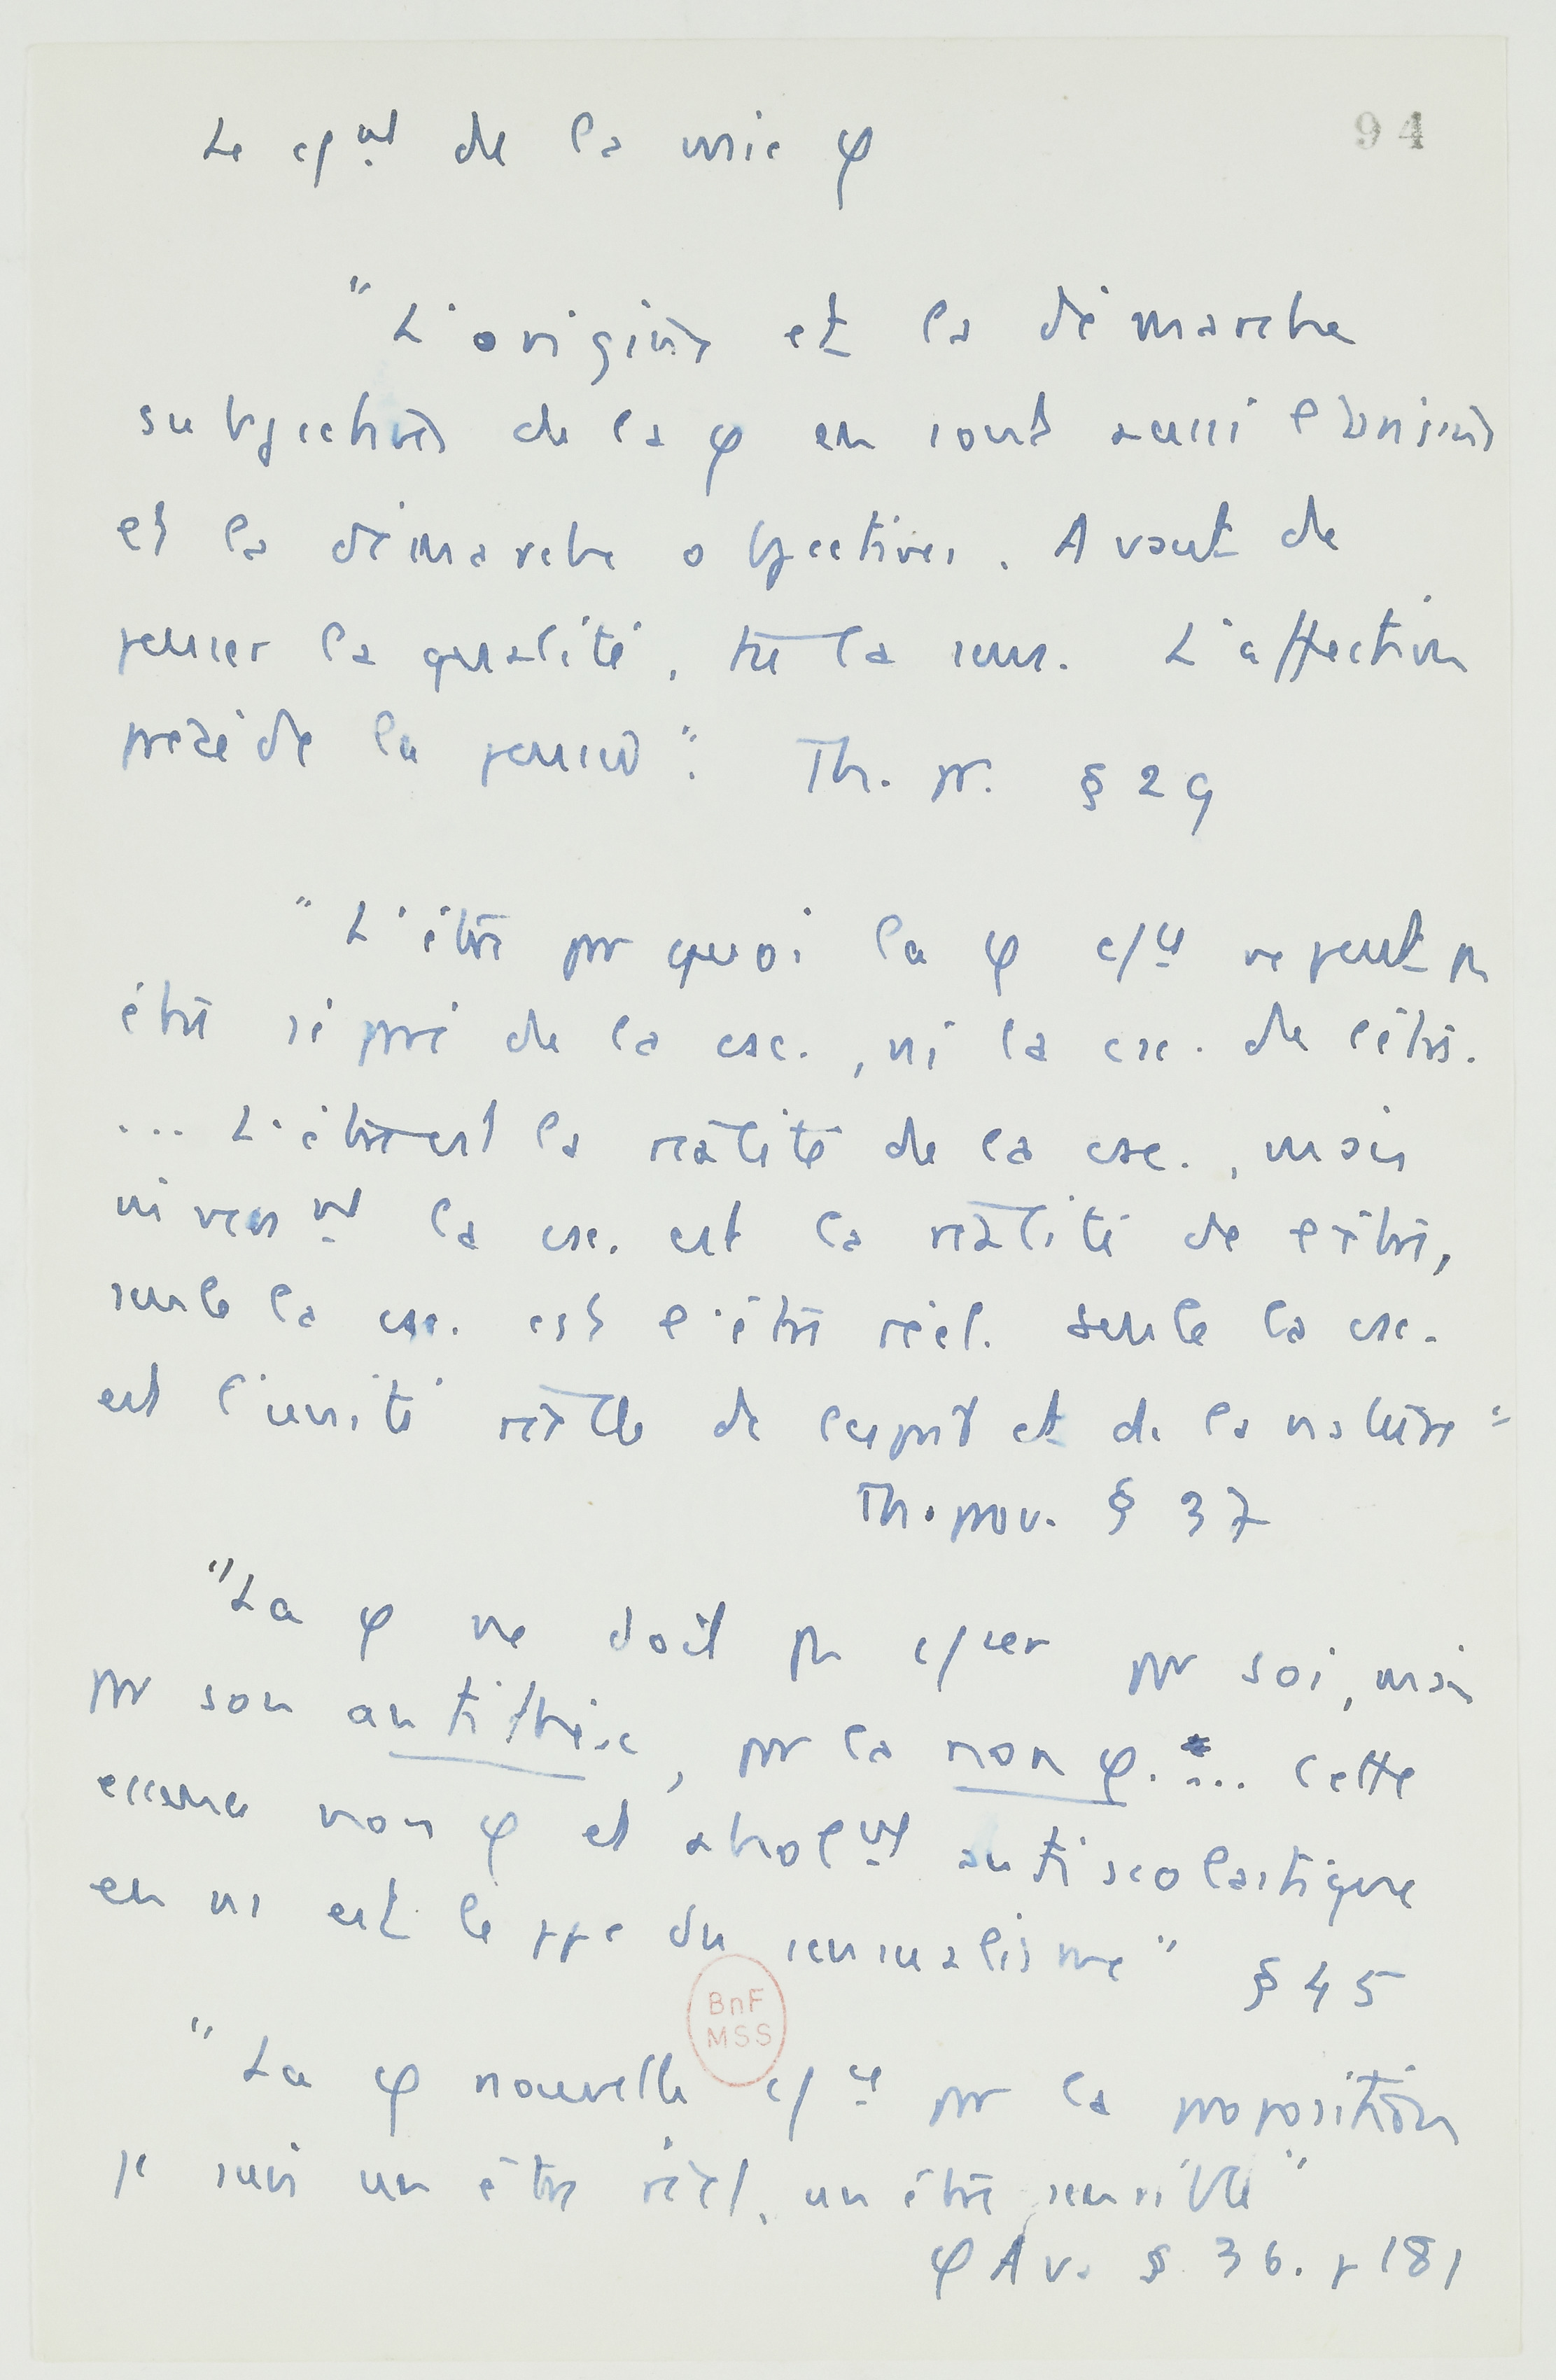 Le c/mt de la vraie φ
94
"L'origine et la démarche
subjectives de la φ en sont aussi l'origine
et la démarche objectives. Avant de
penser la qualité, tu la sens. L'affection
précède la pensée". Th. pr. § 29
"L'être par quoi la φ c/ce ne peut pas
être séparé de la csc., ni la csc. de l'être.
... L'être est la réalité de la csc., mais
inversmt la csc. est la réalité de l'être,
seule la csc. est l'être réel. Seule la csc.
est l'unité réelle de l'esprit et de la nature"
Th. prov. § 37
"La φ ne doit pas c/cer par soi, mais
par son antithèse, par la non φ. ... Cette
essence non φ et absolmt antiscolastique
en ns est le ppe du sensualisme" § 45
BnF
MSS
"La φ nouvelle c/ce par la proposition
je suis un être réel, un être sensible"
φ Av. § 36. p 181